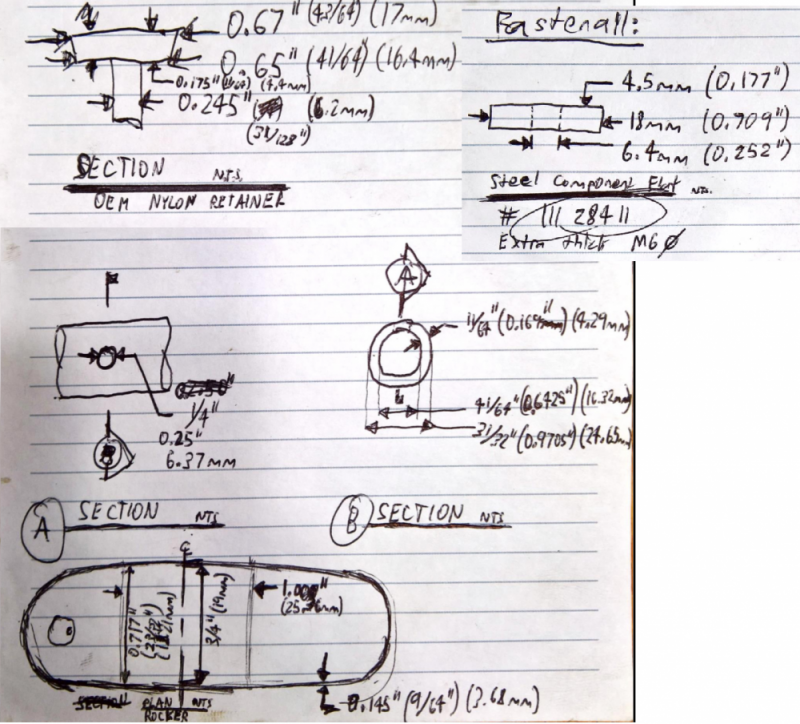 0.67" (43/64) (17mm)
0.65" (41/64) (16.4mm)
0.175" (11/64) (4.4mm)
0.245" (6.2mm)
(31/128")
SECTION N.T.S.
OEM NYLON RETAINER
Fastenall:
4.5mm (0.177")
18mm (0.709")
6.4mm (0.252")
Steel Component NTS.
# 11128411
Extra thick M6Ø
A
11/64" (4.29mm)
41/64" (0.6425") (16.32mm)
31/32" (0.9705") (24.65mm)
1/4"
0.25"
6.37mm
B
A SECTION NTS
B SECTION NTS
0.717"
3/4" (19mm)
1.00"
0.145" (9/64") (3.68mm)
PLAN NTS
ROCKER